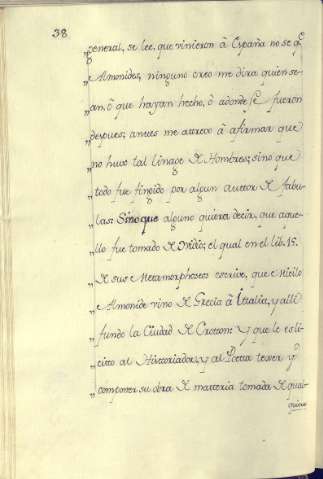 38
„ general, se lee, que vinieron à España no se qᵉ
„ Almonides, ninguno creo me dira quien se-
„ an, ò que hayan hecho, ò adonde se fueron
„ despues; antes me atrevo à afirmar que
„ no huvo tal linage de Hombres; sino que
„ todo fue fingido por algun autor de fabu-
„ las: Sino que alguno quiera decir, que aque-
„ llo fue tomado de Ovidio; el qual en el lib. 15.
„ de sus Metamorphoses escrive, que Micilo
„ Almonide vino de Grecia à Ittalia, y alli
„ fundo la Ciudad de Croton: Y que le es li-
„ cito al Historiador, y al Poeta texer y
„ componer su obra de matteria tomada de qual-
quiera